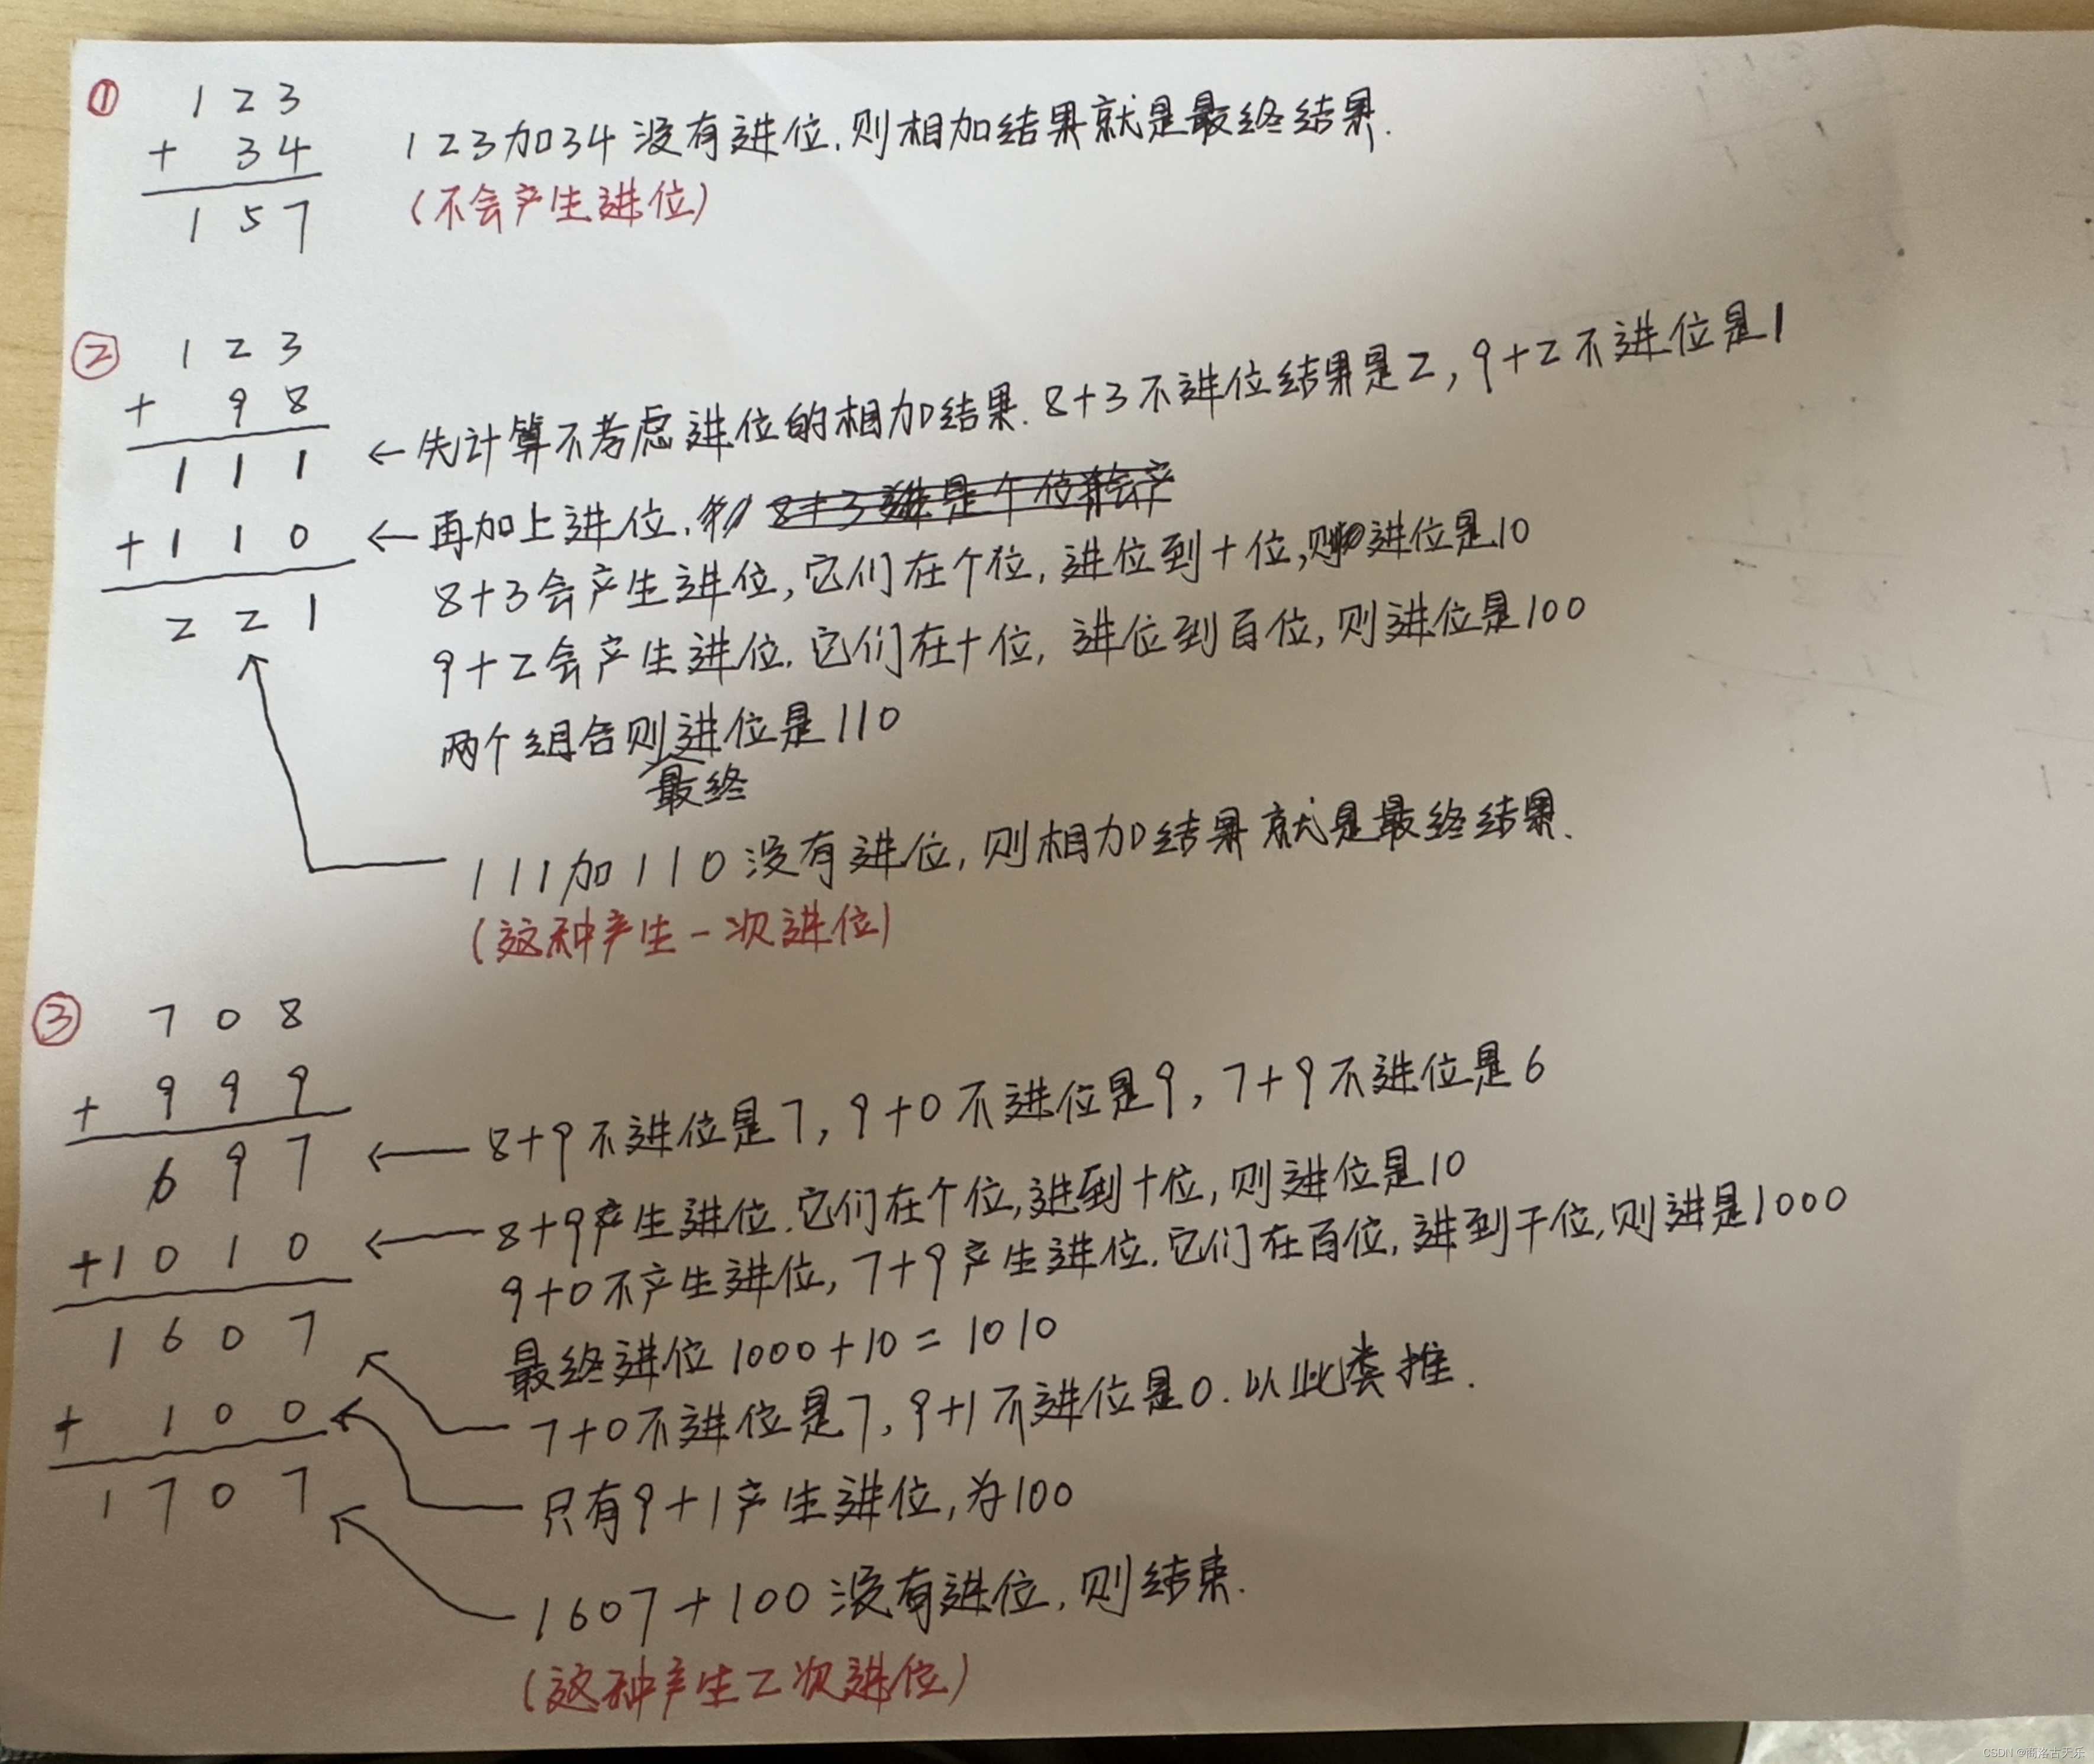 ① 1 2 3
+ 3 4
1 5 7
123加34没有进位,则相加结果就是最终结果.
(不会产生进位)
② 1 2 3
+ 9 8
1 1 1
+ 1 1 0
2 2 1
←先计算不考虑进位的相加结果. 8+3不进位结果是2, 9+2不进位是1
←再加上进位.
8+3会产生进位,它们在个位,进位到十位,则进位是10
9+2会产生进位.它们在十位,进位到百位,则进位是100
两个组合则进位是110
最终
111加110没有进位,则相加结果就是最终结果.
(这种产生一次进位)
③ 7 0 8
+ 9 9 9
6 9 7
+ 1 0 1 0
1 6 0 7
+ 1 0 0
1 7 0 7
←8+9不进位是7, 9+0不进位是9, 7+9不进位是6
←8+9产生进位.它们在个位,进到十位,则进位是10
9+0不产生进位, 7+9产生进位.它们在百位,进到千位,则进是1000
最终进位1000+10=1010
7+0不进位是7, 9+1不进位是0.以此类推.
只有9+1产生进位,为100
1607+100没有进位,则结束.
(这种产生2次进位)
CSDN @商洛古天乐